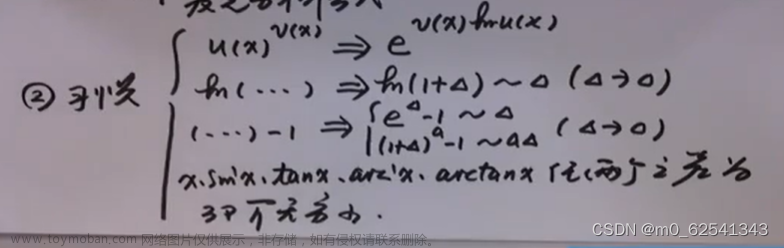 ② 习惯
u(x)^v(x) ⇒ e^v(x)lnu(x)
ln(···) ⇒ ln(1+Δ) ~ Δ (Δ→0)
(···)-1 ⇒ { e^Δ-1 ~ Δ
(1+Δ)^a-1 ~ aΔ (Δ→0)
x、sinx、tanx、arcsinx、arctanx 任两个之差为
3阶无穷小.
www.toymoban.com 网络图片仅供展示,非存储,如有侵权请联系删除。
CSDN @m0_62541343